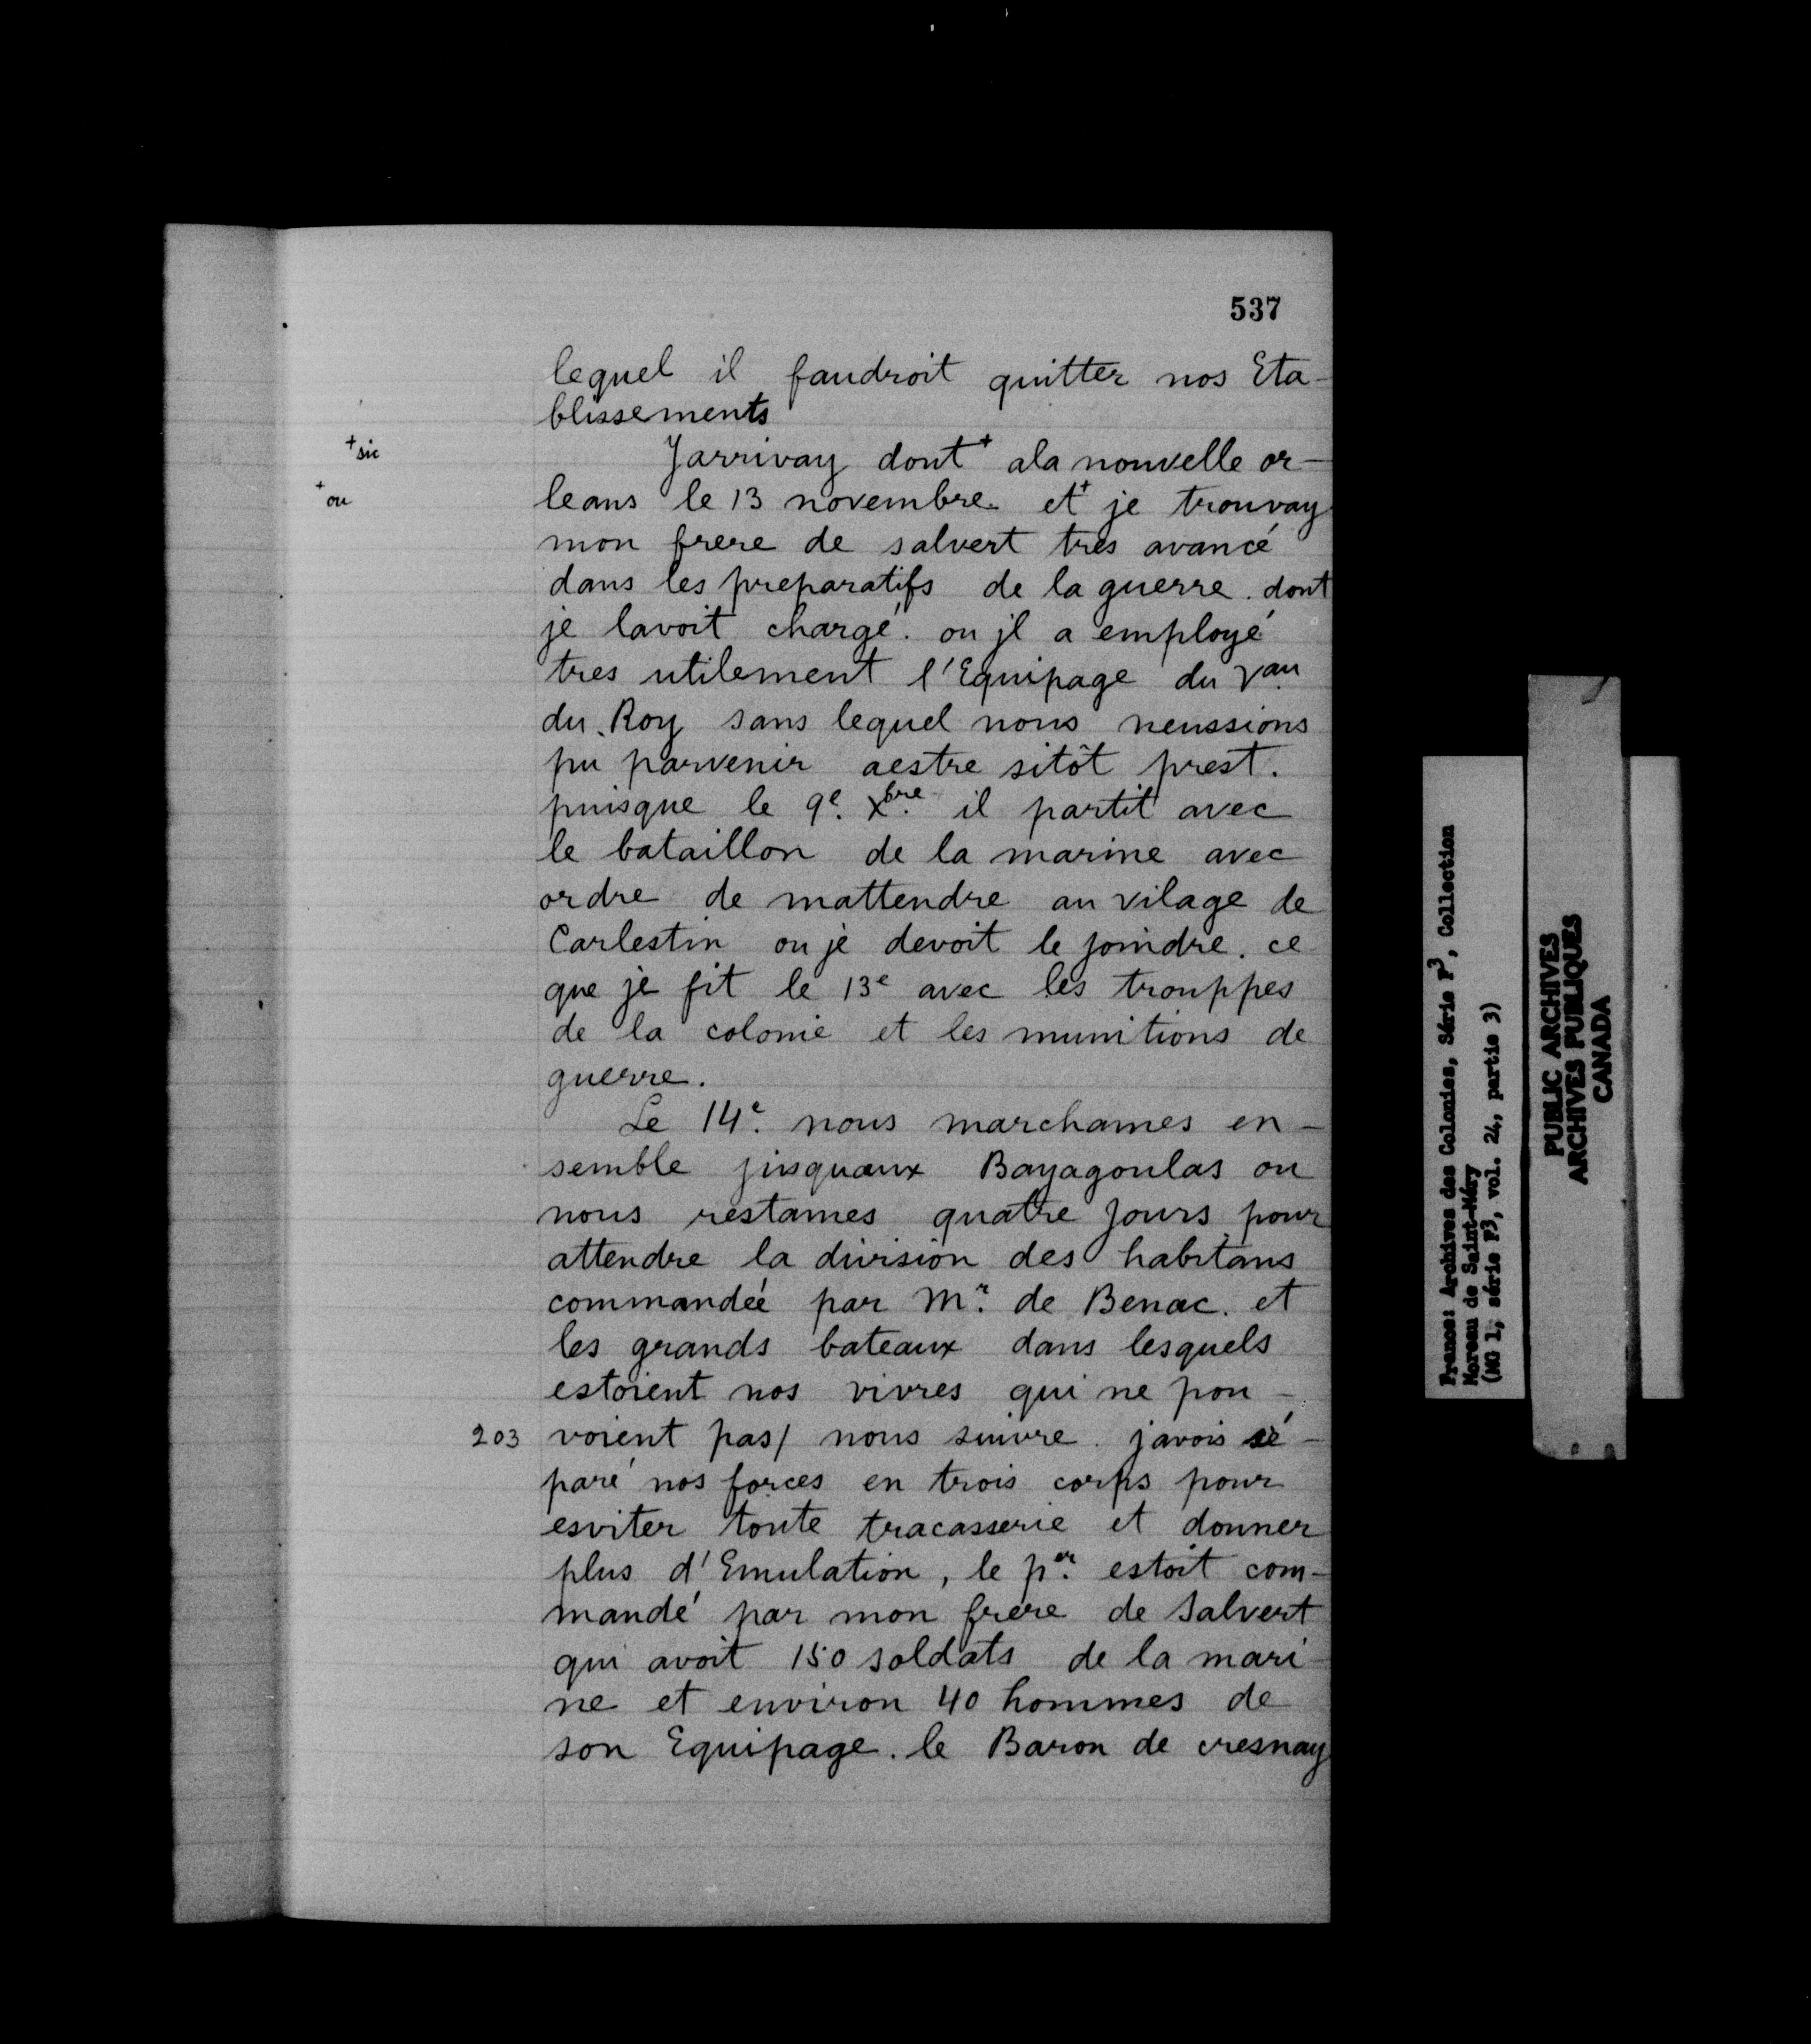 537
lequel il faudroit quitter nos Eta-
blissements
+ sic
Jarrivay dont+ ala nouvelle or-
+ ou
leans le 13 novembre. et+ je trouvay
mon frere de salvert tres avancé
dans les preparatifs de la guerre. dont
je lavoit chargé. ou jl a employé
tres utilement l'Equipage du Vau
du Roy sans lequel nous neussions
pu parvenir aestre sitôt prest.
puisque le 9e. Xbre. il partit avec
le bataillon de la marine avec
ordre de mattendre au vilage de
Carlestin ou je devoit le joindre. ce
que je fit le 13e avec les trouppes
de la colonie et les munitions de
guerre.
Le 14e. nous marchames en-
semble jusquaux Bayagoulas ou
nous restames quatre jours pour
attendre la division des habitans
commandeé par Mr. de Benac. et
les grands bateaux dans lesquels
estoient nos vivres qui ne pou-
203 voient pas/ nous suivre. javois sé-
paré nos forces en trois corps pour
esviter toute tracasserie et donner
plus d'Emulation, le per. estoit com-
mandé par mon frere de Salvert
qui avoit 150 soldats de la mari-
ne et environ 40 hommes de
son Equipage. le Baron de cresnay
France: Archives des Colonies, Série F3, Collection
Moreau de Saint-Méry
(MG 1, série F3, vol. 24, partie 3)
PUBLIC ARCHIVES
ARCHIVES PUBLIQUES
CANADA